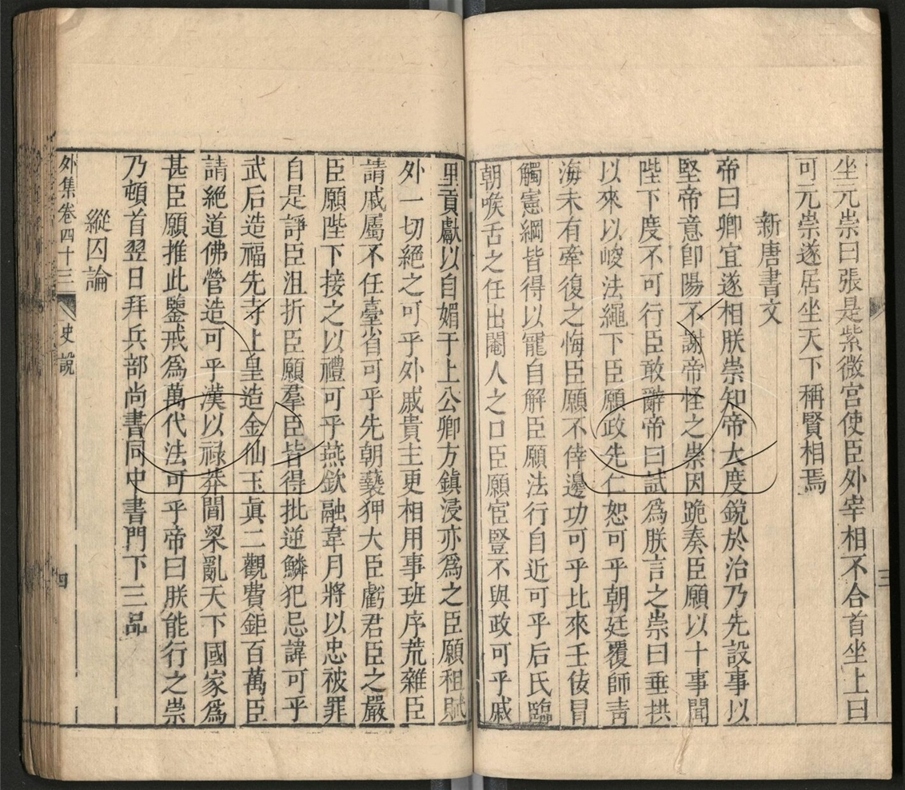 坐元崇曰張是紫微宮使臣外宰相不合首坐上曰
可元崇遂居坐天下稱賢相焉
新唐書文
帝曰卿宜遂相朕崇知帝大度銳於治乃先設事以
堅帝意卽陽不謝帝怪之崇因跪奏臣願以十事聞
陛下度不可行臣敢辭帝曰試爲朕言之崇曰垂拱
以來以峻法繩下臣願政先仁恕可乎朝廷覆師靑
海未有牽復之悔臣願不倖邊功可乎比來壬佞冒
觸憲綱皆得以寵自解臣願法行自近可乎后氏臨
朝喉舌之任出閹人之口臣願宦豎不與政可乎戚
里貢獻以自媚于上公卿方鎮浸亦爲之臣願租賦
外一切絕之可乎外戚貴主更相用事班序荒雜臣
請戚屬不任臺省可乎先朝褻狎大臣虧君臣之嚴
臣願陛下接之以禮可乎燕欽融韋月將以忠被罪
自是諍臣沮折臣願羣臣皆得批逆鱗犯忌諱可乎
武后造福先寺上皇造金仙玉眞二觀費鉅百萬臣
請絕道佛營造可乎漢以祿莽閻梁亂天下國家爲
甚臣願推此鑒戒爲萬代法可乎帝曰朕能行之崇
乃頓首翌日拜兵部尚書同中書門下三品
縱囚論
外集卷四十三
史說
四
三